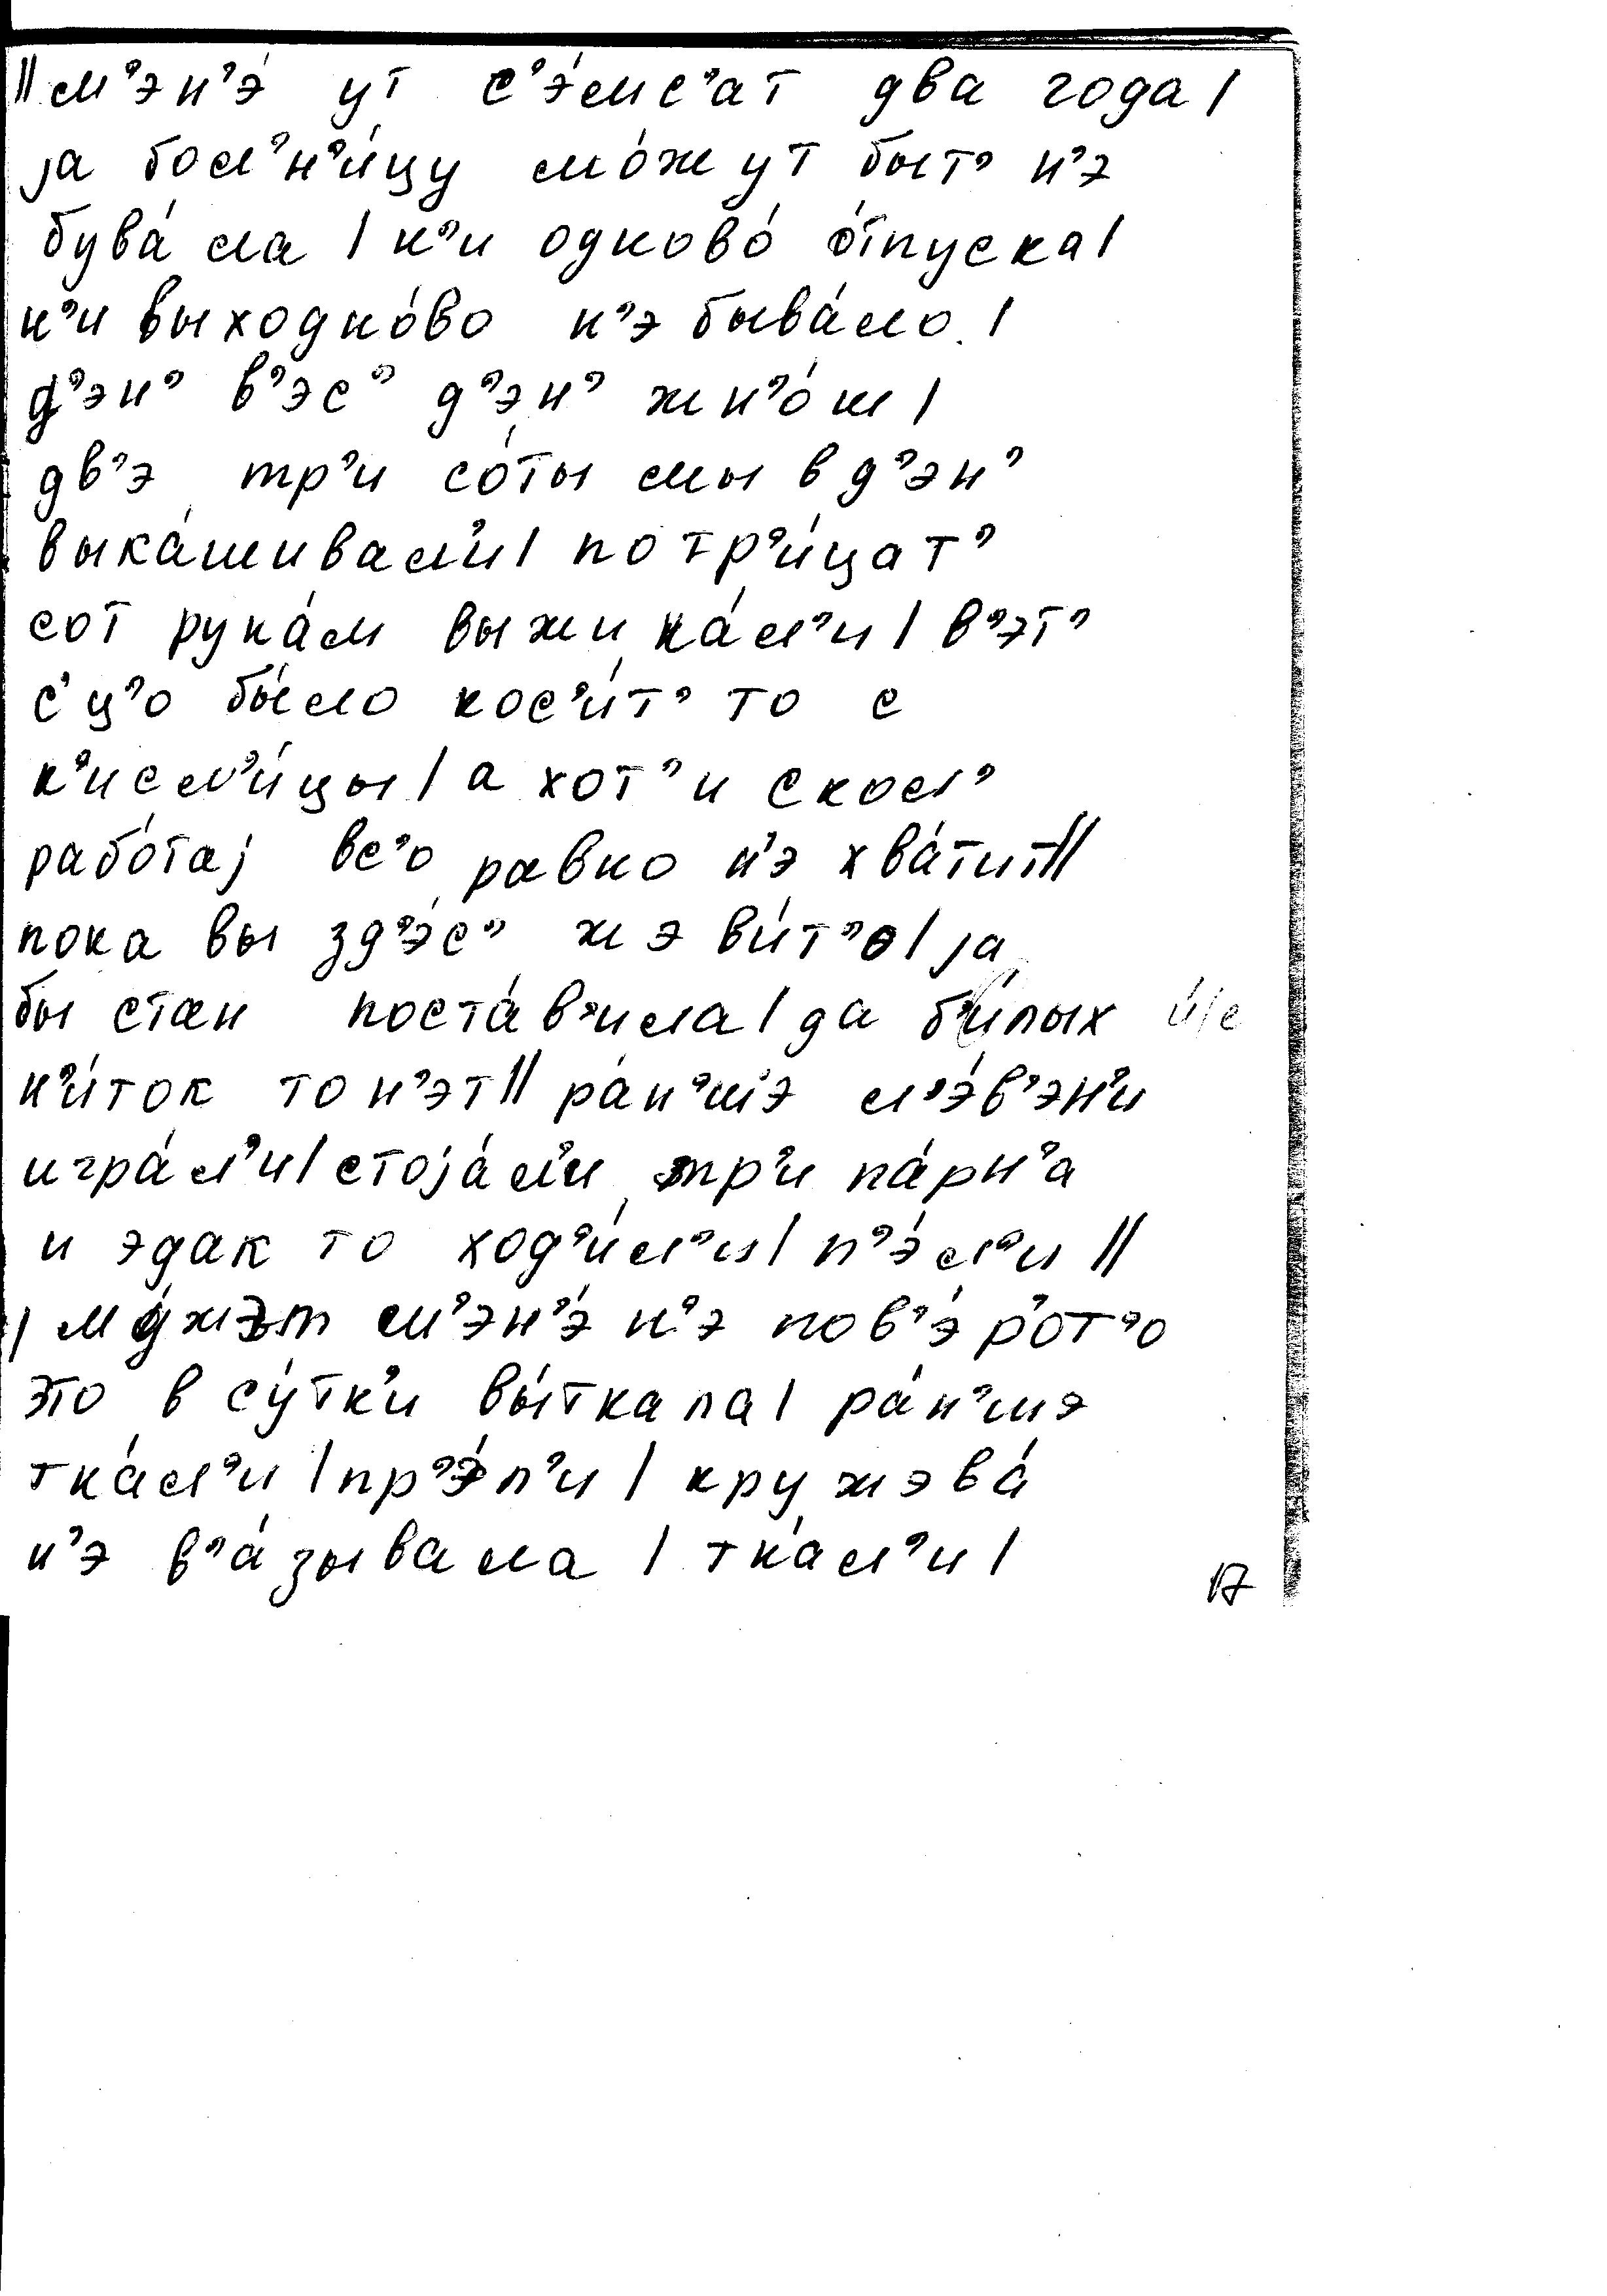 || м’эн’э́ ут с’э́мс’ат два года |
jа бол’н’и́цу мо́жут быт’ н’э
бува́ла | н’и одново́ о́тпуска |
н’и выходно́во н’э быва́ло |
д’эн’ в’эс’ д’эн’ жн’о́ш |
дв’э тр’и со́ты мы в д’эн’
выка́шивал’и | по тр’и́цат’
сот рука́м выжина́л’и | в’эт’
с’ц’о бы́ло кос’и́т’ то с
к’исл’и́цы | а хот’ и скол’
рабо́таj вс’о равно н’э хва́тит ||
пока вы зд’э́с’ жэви́т’о | jа
бы стан поста́в’ила | да б’и́лых
н’и́ток то н’эт || ра́н’шэ л’э́в’эн’и
игра́л’и | стоjа́л’и тр’и па́рн’а
и эдак то ход’и́л’и | п’э́л’и ||
| мо́жэт м’эн’э́ н’э пов’э́р’от’о
это в су́тк’и вы́ткала | ра́н’шэ
тка́л’и | пр’э́л’и | кружэва́
н’э в’а́зывала | тка́л’и |
17